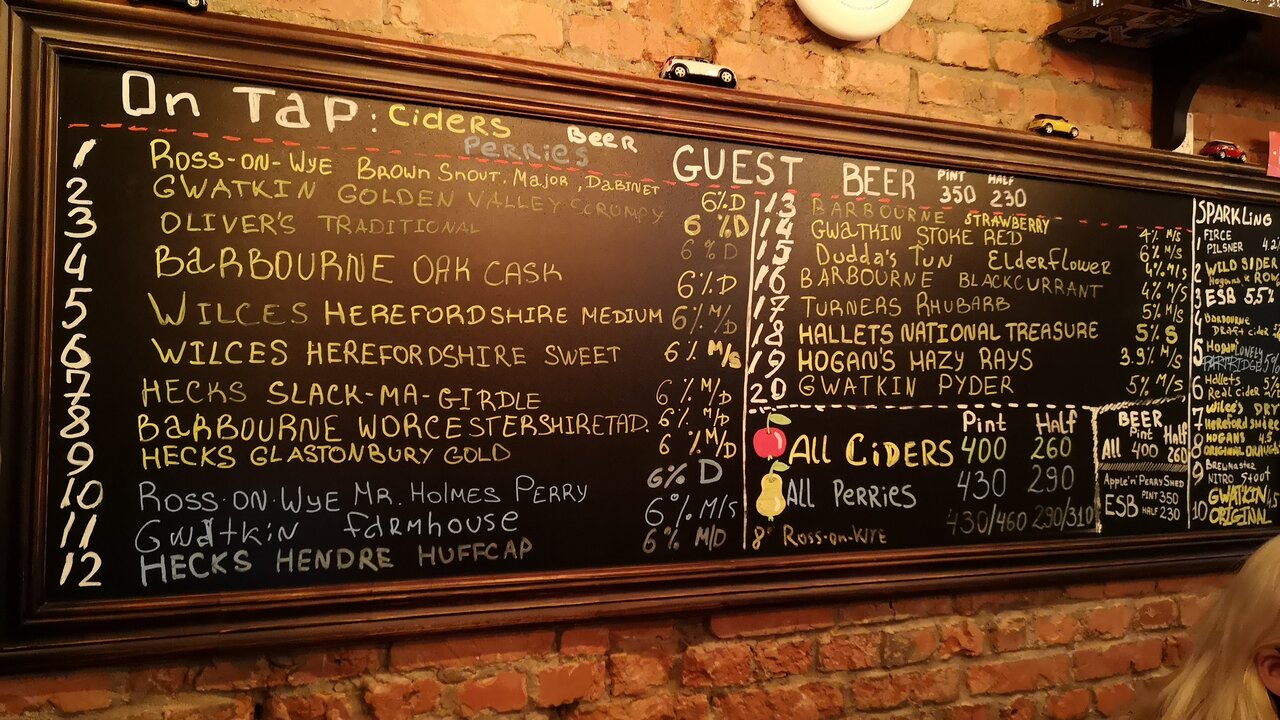 On Tap: Ciders Beer
Perries
1 Ross-on-Wye Brown Snout, Major, Dabinet 6%D
2 Gwatkin Golden Valley Scrumpy 6%D
3 Oliver's Traditional 6%D
4 Barbourne Oak Cask 6%D
5 Wilces Herefordshire Medium 6% M/D
6 Wilces Herefordshire Sweet 6% M/S
7 Hecks Slack-Ma-Girdle 6% M/D
8 Barbourne Worcestershire Tad. 6% M/D
9 Hecks Glastonbury Gold 6% M/D
10 Ross-on-Wye Mr. Holmes Perry 6% D
11 Gwatkin Farmhouse 6% M/S
12 Hecks Hendre Huffcap 6% M/D
Guest Beer Pint Half
350 230
13 Barbourne Strawberry 4% M/S
14 Gwatkin Stoke Red 6% M/S
15 Dudda's Tun Elderflower 4% M/S
16 Barbourne Blackcurrant 4% M/S
17 Turners Rhubarb 5% M/S
18 Hallets National Treasure 5% S
19 Hogan's Hazy Rays 3.9% M/S
20 Gwatkin Pyder 5% M/S
Pint Half
All Ciders 400 260
All Perries 430 290
8% Ross-on-Wye 430/460 290/310
Beer
Pint Half
All 400 260
Apple'n'Perry Shed
ESB Pint 350
Half 230
Sparkling
1 Firce
Pilsner 4.2
2 Wild Sider
3 ESB 5.5%
4 Barbourne
Draft cider
5 Hogan Lonely
Partridge 5%
6 Hallets
Real Cider
7 Wilce's Dry
Hereford Shire
8 Hogans 4.5
Original Draug
9 Brewmaster
Nitro Stout
10 Gwatkin
Original